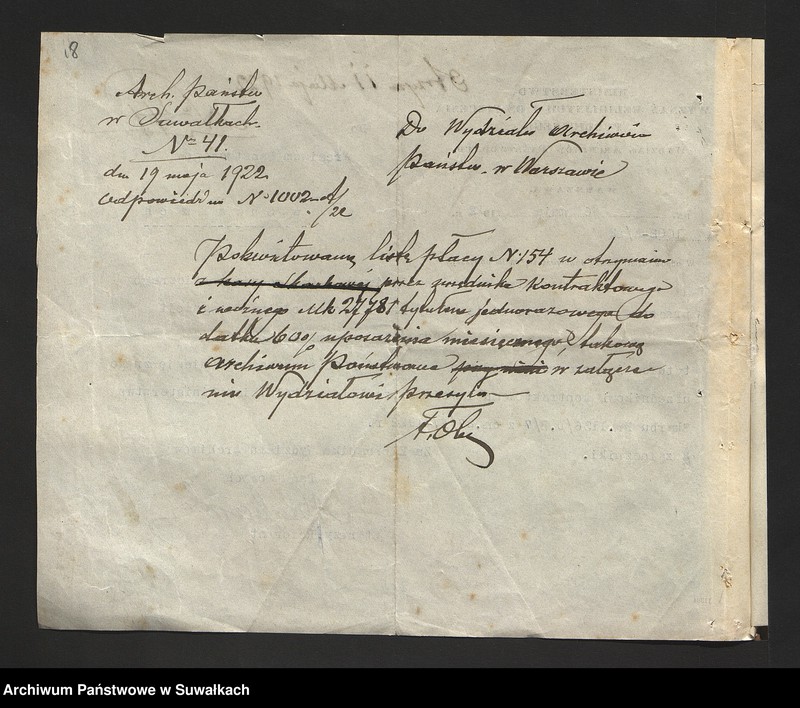 18
Arch. Państw
w Suwałkach.
№ 41.
dn 19 maja 1922
Odpowiedź na № 1002-A/22
Do Wydziału Archiwów
Państw. w Warszawie
Pokwitowaną listę płacy № 154 w otrzymaniu
z kasy Skarbowej przez urzędnika Kontraktowego
i Mk 27781 tytułem jednorazowego do
datku 60% uposażenia miesięcznego, takową
Archiwum Państwowe w załącze-
niu Wydziałowi przesyła
Archiwum Państwowe w Suwałkach